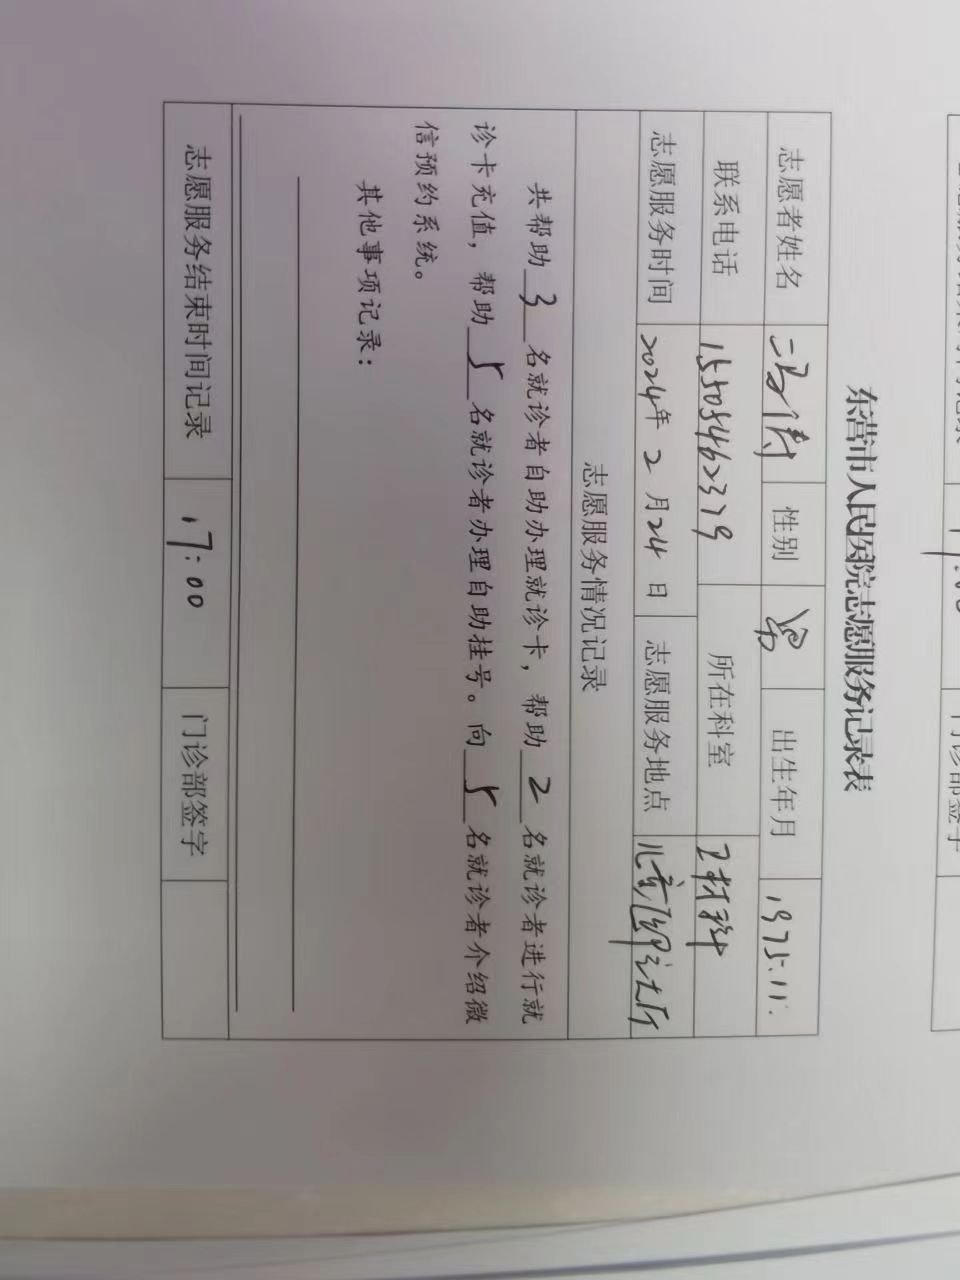 东营市人民医院志愿服务记录表
志愿者姓名 性别 男 出生年月 1975.11.
联系电话 15505462379 所在科室
志愿服务时间 2024年 2 月24 日 志愿服务地点
志愿服务情况记录
共帮助 3 名就诊者自助办理就诊卡，帮助 2 名就诊者进行就
诊卡充值，帮助 5 名就诊者办理自助挂号。向 5 名就诊者介绍微
信预约系统。
其他事项记录：
志愿服务结束时间记录 17:00 门诊部签字